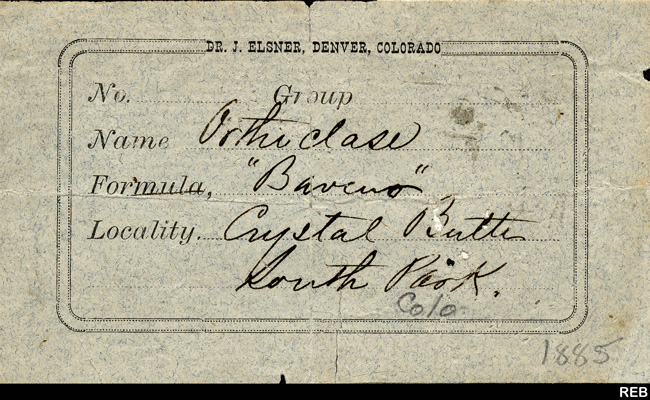 DR. J. ELSNER, DENVER, COLORADO
No. Group
Name Orthoclase
Formula, "Baveno"
Locality. Crystal Butte
South Park.
Colo.
1885
REB